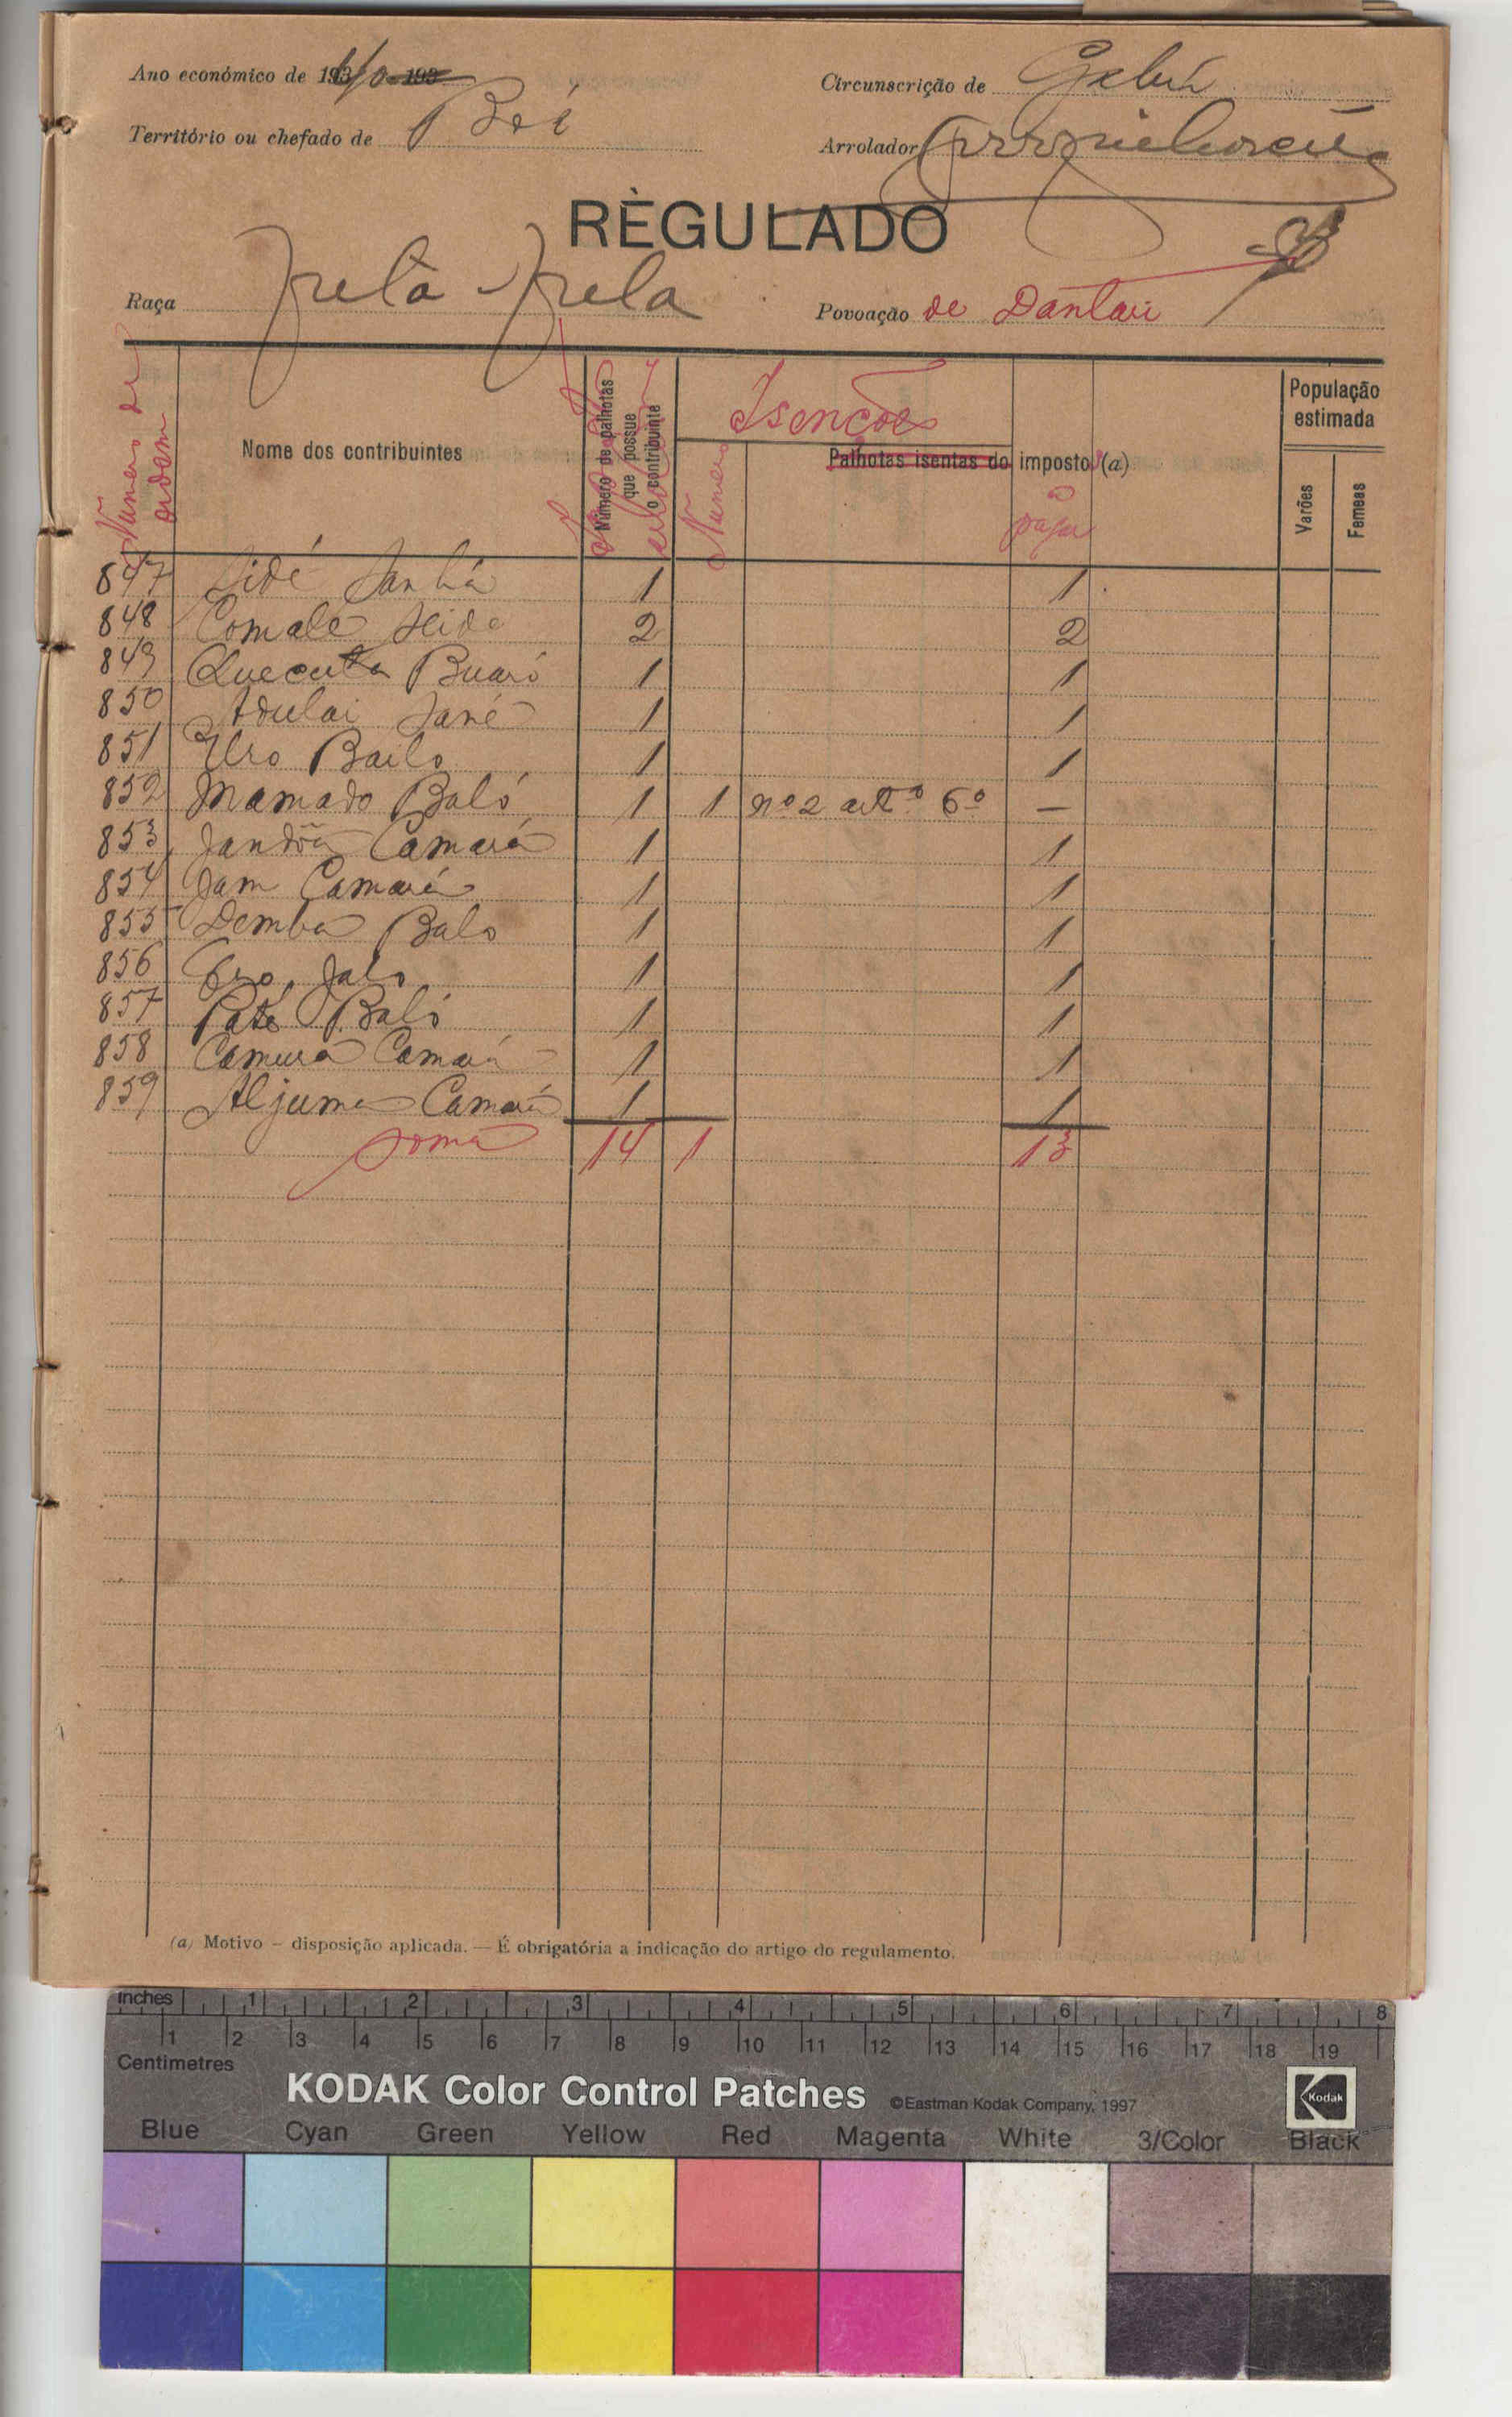 Ano económico de 1940
Circunscrição de Gabú
Território ou chefado de Boé
Arrolador
RÈGULADO
Raça Fula-Fula
Povoação de Dantari
Numero de ordem
Nome dos contribuintes
Número de palhotas que possue o contribuinte
Isenções
Numero
Palhotas isentas do imposto (a)
a pagar
População estimada
Varões
Femeas
847 Sidé Sanhá 1 1
848 Comalé Seide 2 2
849 Quecuta Buaró 1 1
850 Adulai Sané 1 1
851 Uro Bailo 1 1
852 Mamado Baló 1 1 nº 2 artº 6º —
853 Camará 1 1
854 Jam Camará 1 1
855 Demba Balo 1 1
856 Jalo 1 1
857 Paté Baló 1 1
858 Camará 1 1
859 Aljuma Camará 1 1
soma 14 1 13
(a) Motivo – disposição aplicada. — É obrigatória a indicação do artigo do regulamento.
inches 1 2 3 4 5 6 7 8
1 2 3 4 5 6 7 8 9 10 11 12 13 14 15 16 17 18 19
Centimetres
KODAK Color Control Patches ©Eastman Kodak Company, 1997 Kodak
Blue Cyan Green Yellow Red Magenta White 3/Color Black